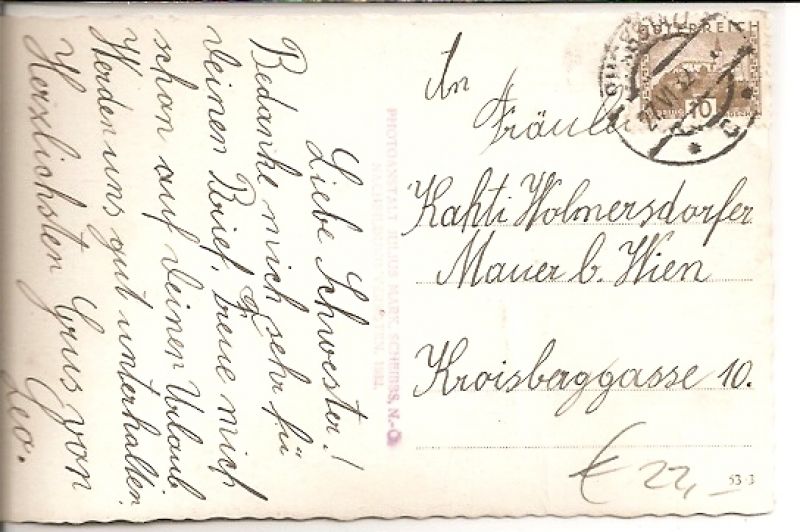 Liebe Schwester!
Bedanke mich sehr für
deinen Brief, freue mich
schon auf deinen Urlaub
Werden uns gut unterhalten.
Herzlichsten Grus von
Leo.
PHOTO-ANSTALT JULIUS MARK, SCHEIBBS, N.-Ö
ÖSTERREICH
10
27 VI 32
An
Fräulein
Kahti Wolmersdorfer
Mauer b. Wien
Kroisberggasse 10.
€ 22,-
53-3